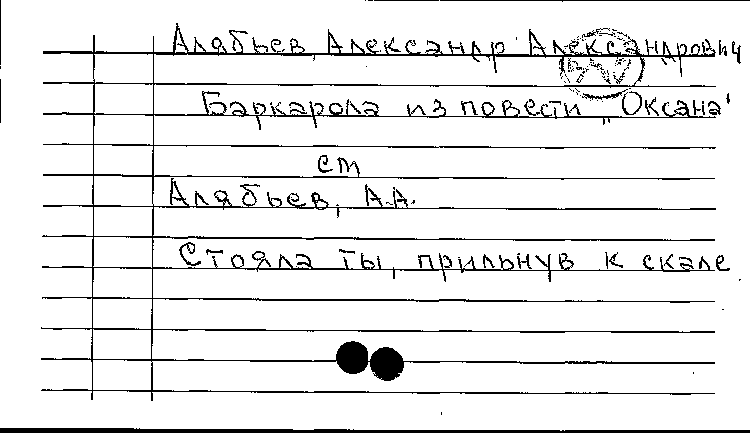 Алябьев, Александр Александрович
Баркарола из повести „Оксана"
см
Алябьев, А.А.
Стояла ты, прильнув к скале